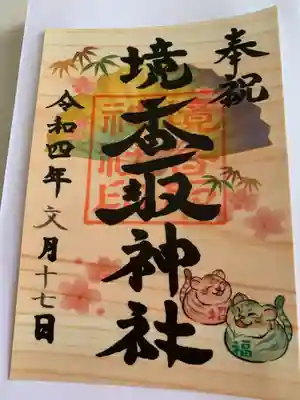 奉祝
境香取神社
令和四年文月十七日
招
福